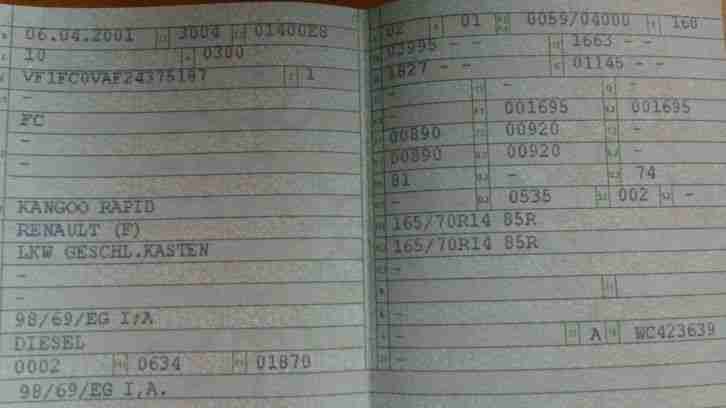 06.04.2001 3004 01400E8
10 0300
VF1FC0VAF24375187 1
-
FC
-
-
KANGOO RAPID
RENAULT (F)
LKW GESCHL.KASTEN
-
-
98/69/EG I;A
DIESEL
0002 0634 01870
98/69/EG I,A.
02 01 0059/04000 160
03995 - - 1663 - -
1827 - - 01145 - -
- - -
- 001695 001695
00890 00920 -
00890 00920 -
81 - 74
- 0535 002 -
165/70R14 85R
165/70R14 85R
-
-
- A WC423639
-